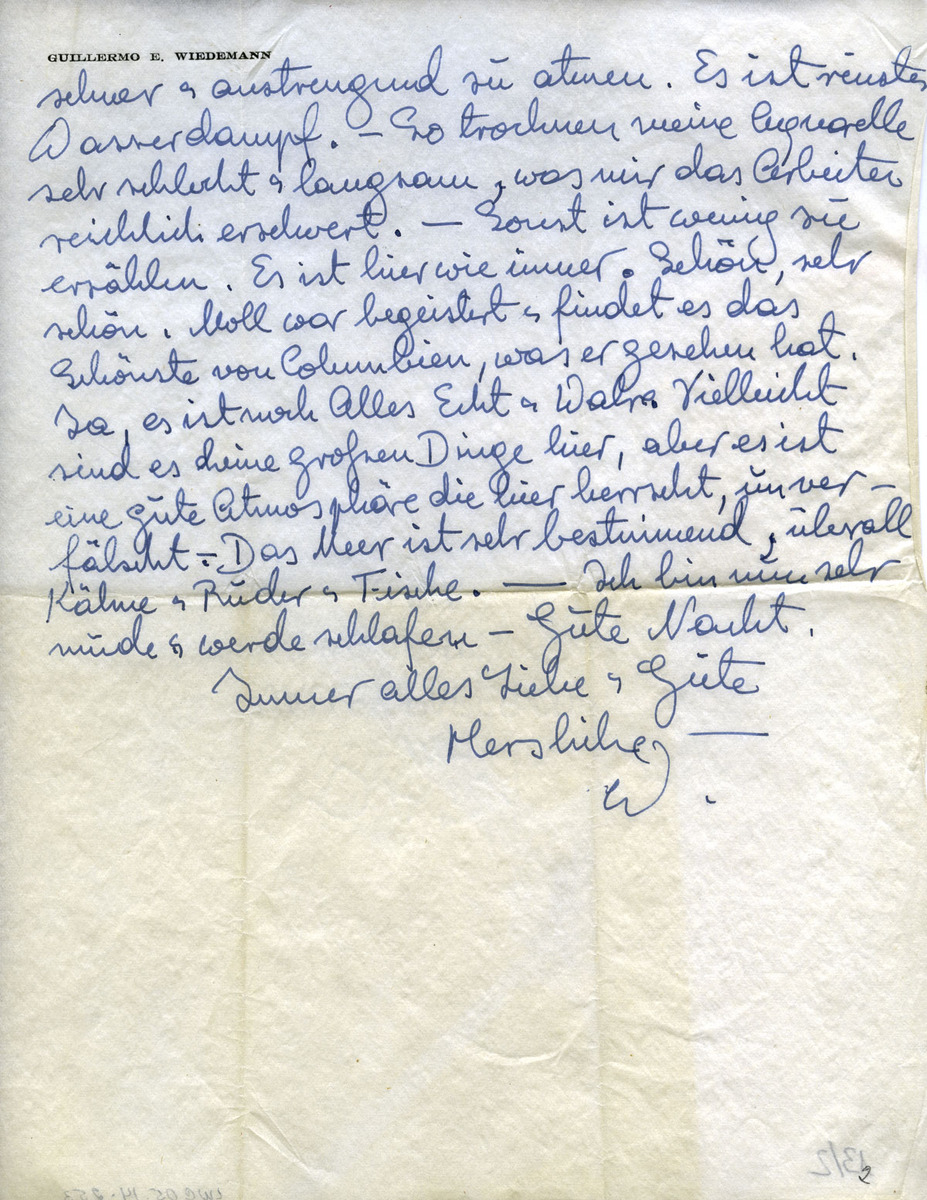 GUILLERMO E. WIEDEMANN
schwer & anstrengend zu atmen. Es ist reinster
Wasserdampf. – So trocknen meine Aquarelle
sehr schlecht & langsam, was mir das Arbeiten
reichlich erschwert. — Sonst ist wenig zu
erzählen. Es ist hier wie immer. Schön, sehr
schön. Moll war begeistert & findet es das
Schönste von Columbien, was er gesehen hat.
Ja, es ist noch Alles Echt & Wahr. Vielleicht
sind es keine großen Dinge hier, aber es ist
eine gute Atmosphäre die hier herrscht, unver-
fälscht – Das Meer ist sehr bestimmend, überall
Kähne & Ruder & Fische. — Ich bin nun sehr
müde & werde schlafen – Gute Nacht.
Immer alles Liebe & Gute
Herzliche —
W.
13/2
2